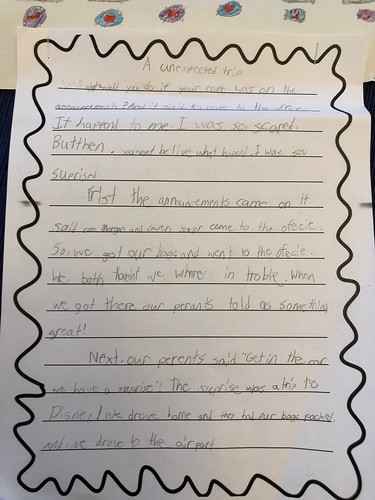 A unexpected trip
what will you do if your name was on the
announcements? And it said to come to the office
It happend to me I was so scared.
Butthen, you wont be live what happend. I was so
suprised
Frist the announcements came on it
said can Morgan and come to the ofecie.
So, we got our bags and went to the ofecie.
We both we where in troble. When
we got there our perants told as something
great!
Next, our parents said "Get in the car
we have a surprise"! The suprise was a trip to
Disney! we drove home and they had our bags packed,
and we drove to the airport